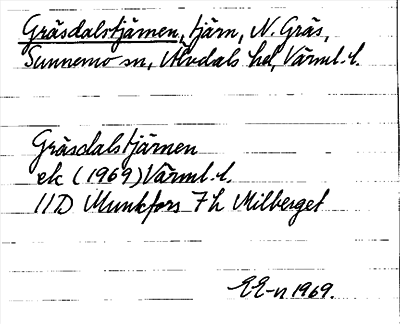 Gräsdalstjärnen, tjärn, N. Gräs,
Sunnemo sn, Älvdals hd, Värml. l.
Gräsdalstjärnen
ek (1969) Värml. l.
11D Munkfors 7h Milberget
EE-n 1969.